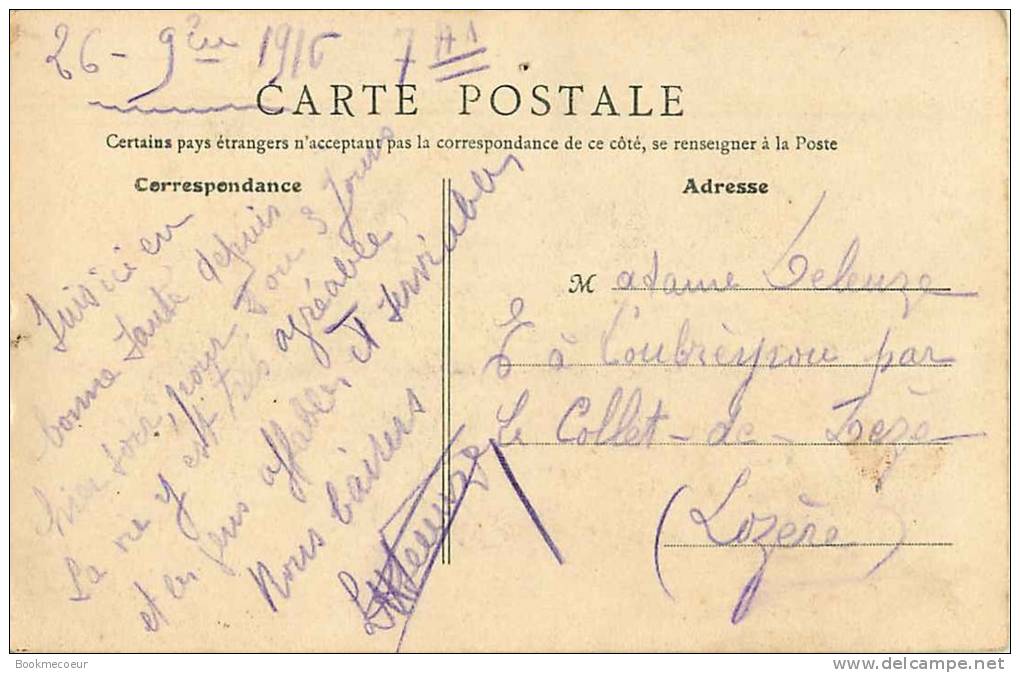 26 - 9bre 1916 7 H 1
CARTE POSTALE
Certains pays étrangers n'acceptant pas la correspondance de ce côté, se renseigner à la Poste
Correspondance
Suis ici en
bonne Santé depuis
hier soir, pour 2 ou 3 jours
La vie y est très agréable
et les gens affables et serviables
Bons baisers
Deleuze
Adresse
Madame Deleuze
à Coubreypou par
Le Collet-de-Dèze
(Lozère)
Bookmecoeur
delcampe.net